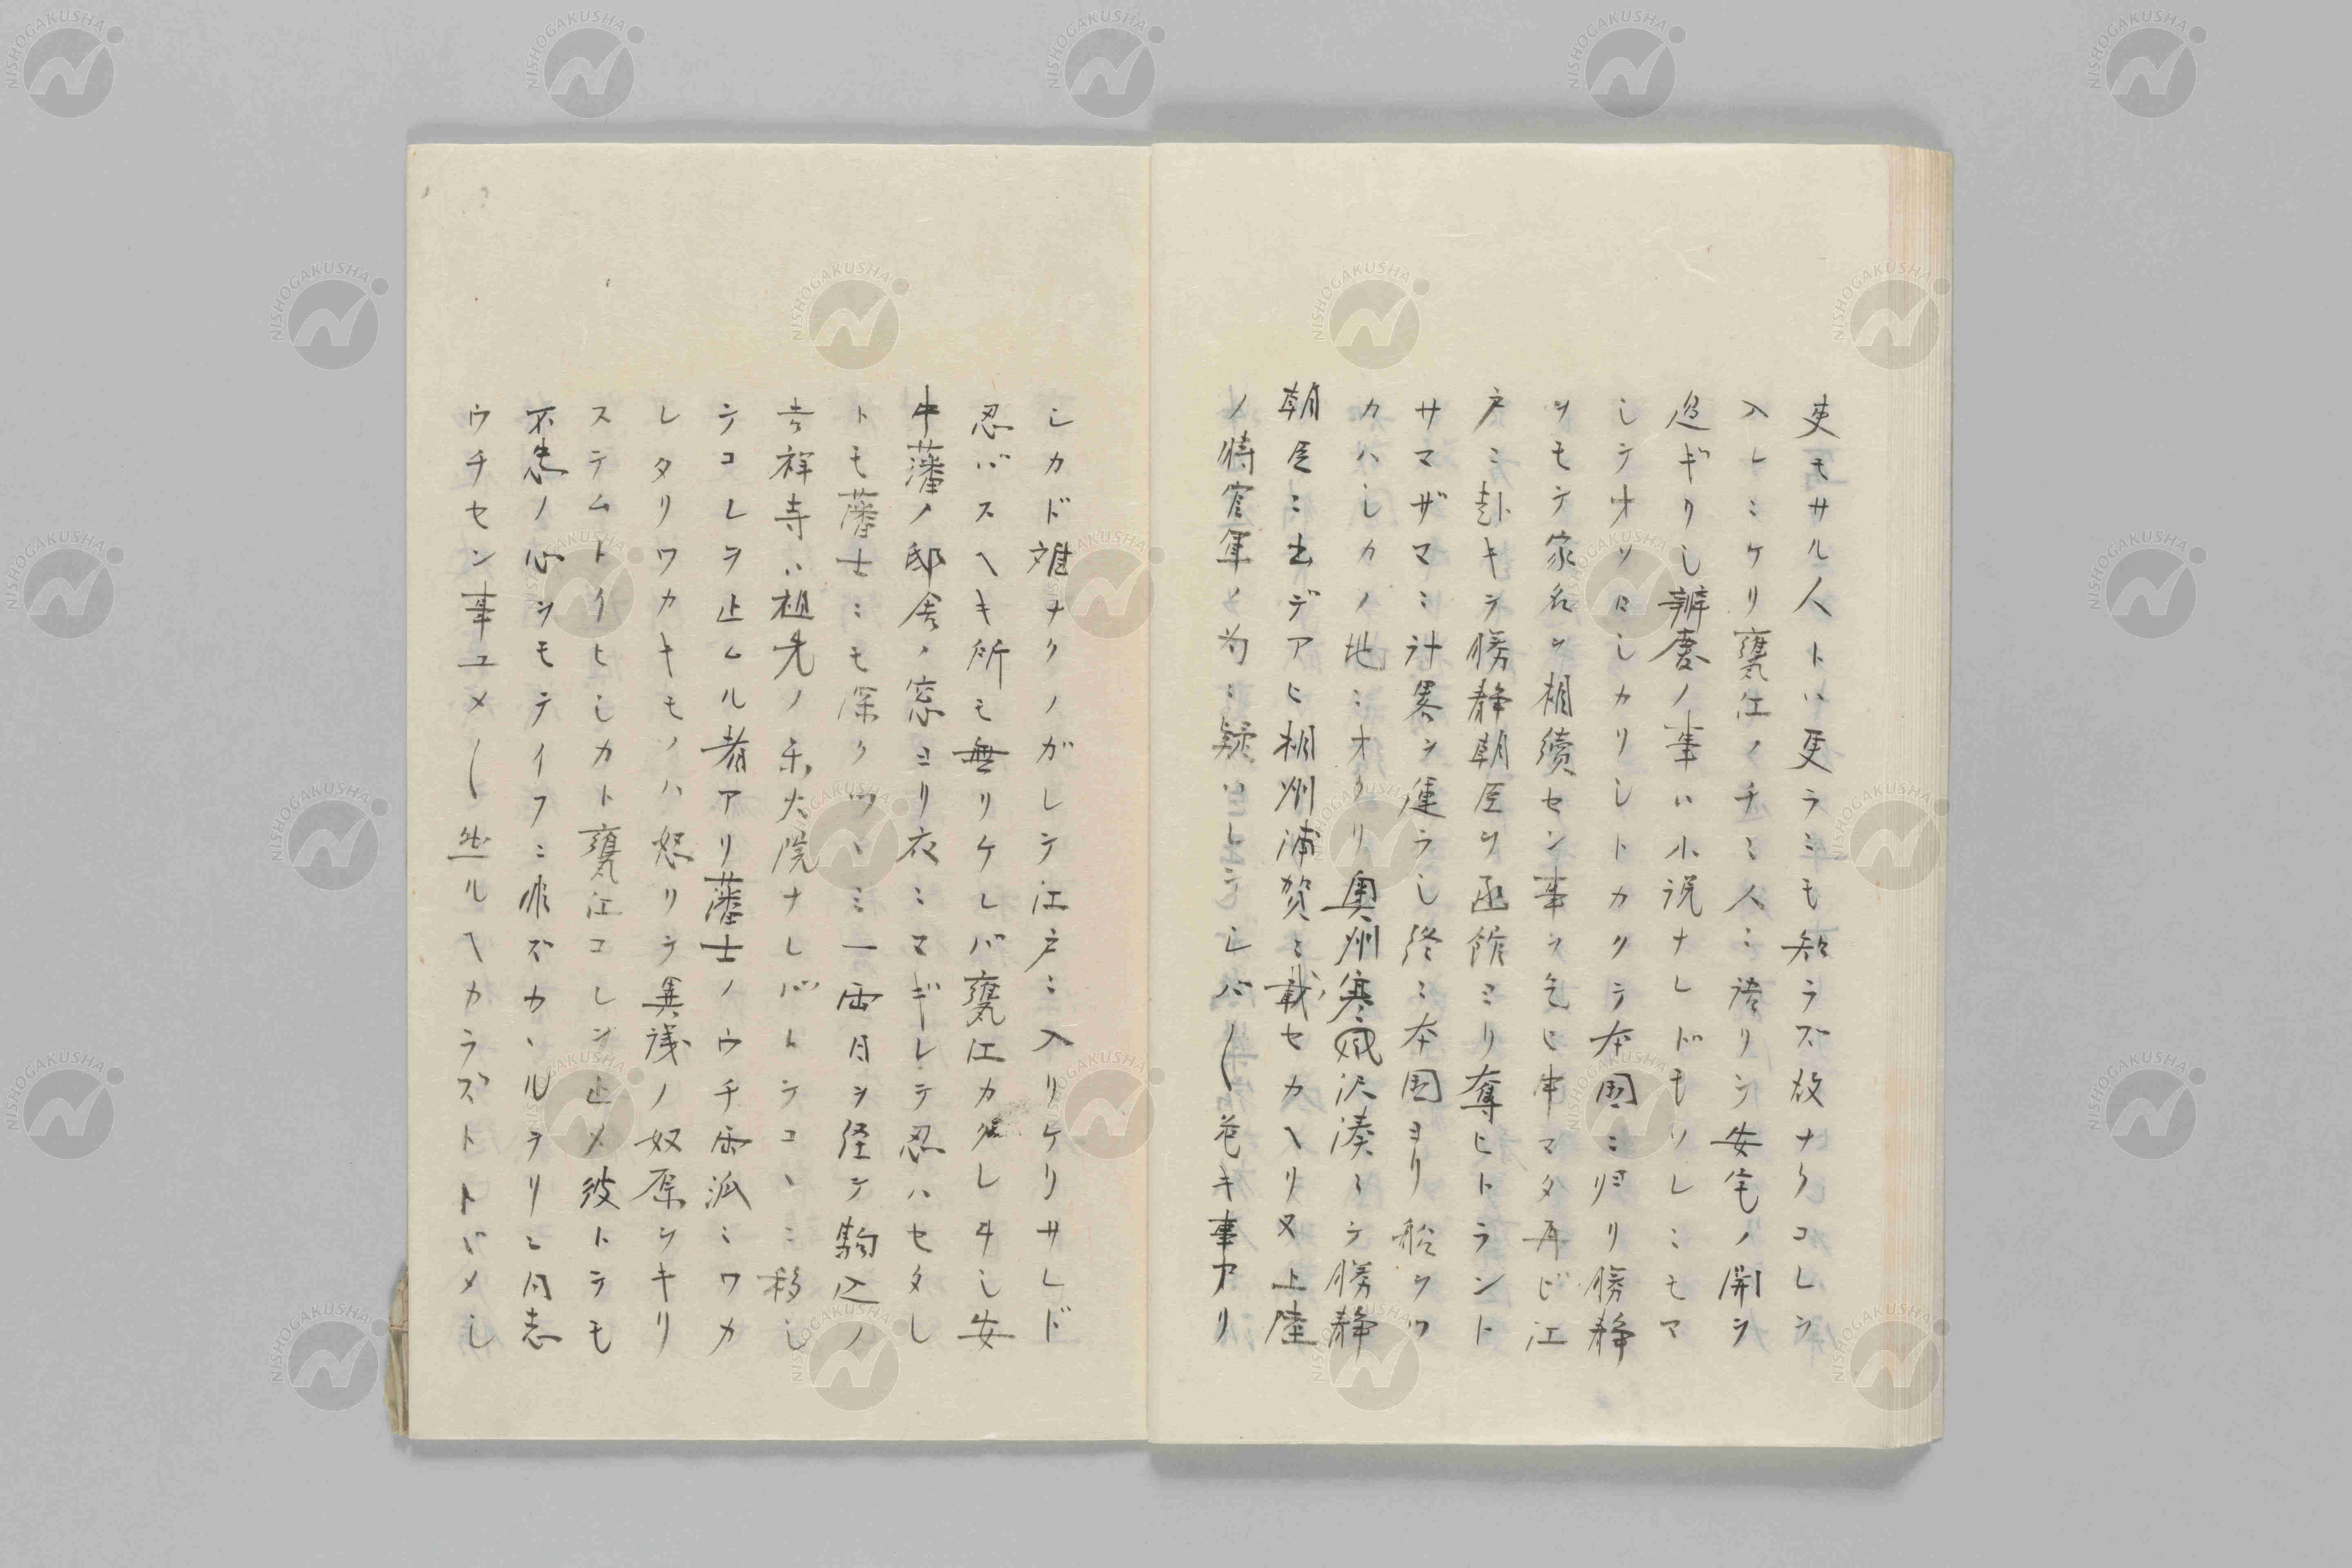 吏モサル人トハ更ラニモ知ラズ故ナクコレヲ
入レニケリ甕江ノチニ人ニ語リシ安宅ノ関ヲ
過ギリシ辨慶ノ事ハ小説ナレドモソレニモマ
シテオソロシカリシトカクテ本国ニ帰リ勝静
ヲモテ家名ヲ相續セン事ヲ乞ヒ申マタ再ビ江
戸ニ赴キテ勝静朝臣ヲ函館ヨリ奪ヒトラント
サマザマニ計畧ヲ運ラシ終ニ本国ヨリ船ヲツ
カハシカノ地ニオクリ奥州寒風沢湊ニテ勝静
朝臣ニ出デアヒ相州浦賀ニ載セカヘリ又上陸
ノ時官軍ノ為ニ疑ハレテシバ〱危キ事アリ
シカド難ナクノガレテ江戸ニ入リケリサレド
忍バスヘキ所モ無リケレバ甕江カ是レヰシ安
中藩ノ邸舎ノ窓ヨリ衣ニマギレテ忍ハセタレ
トモ藩士ニモ深クツヽミ一両月ヲ経テ駒込ノ
吉祥寺ハ祖先ノ香火院ナレバトテコヽニ移シ
テコレヲ止ムル者アリ藩士ノウチ両派ニワカ
レタリワカキモノハ怒リテ異議ノ奴原ヲキリ
ステムトイヒシカト甕江コレヲ止メ彼トテモ
不忠ノ心ヲモテイフニ非ズカヽルヲリニ同志
ウチセン事ユメ〱然ルヘカラズトトドメシ